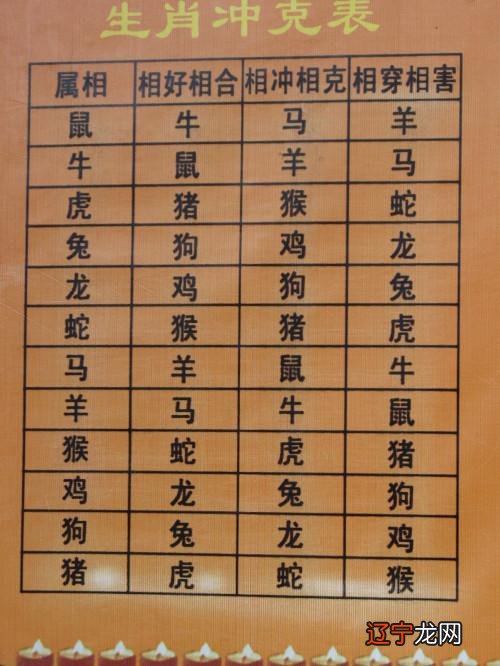 生肖冲克表
属相 相好相合 相冲相克 相穿相害
鼠 牛 马 羊
牛 鼠 羊 马
虎 猪 猴 蛇
兔 狗 鸡 龙
龙 鸡 狗 兔
蛇 猴 猪 虎
马 羊 鼠 牛
羊 马 牛 鼠
猴 蛇 虎 猪
鸡 龙 兔 狗
狗 兔 龙 鸡
猪 虎 蛇 猴
辽宁龙网